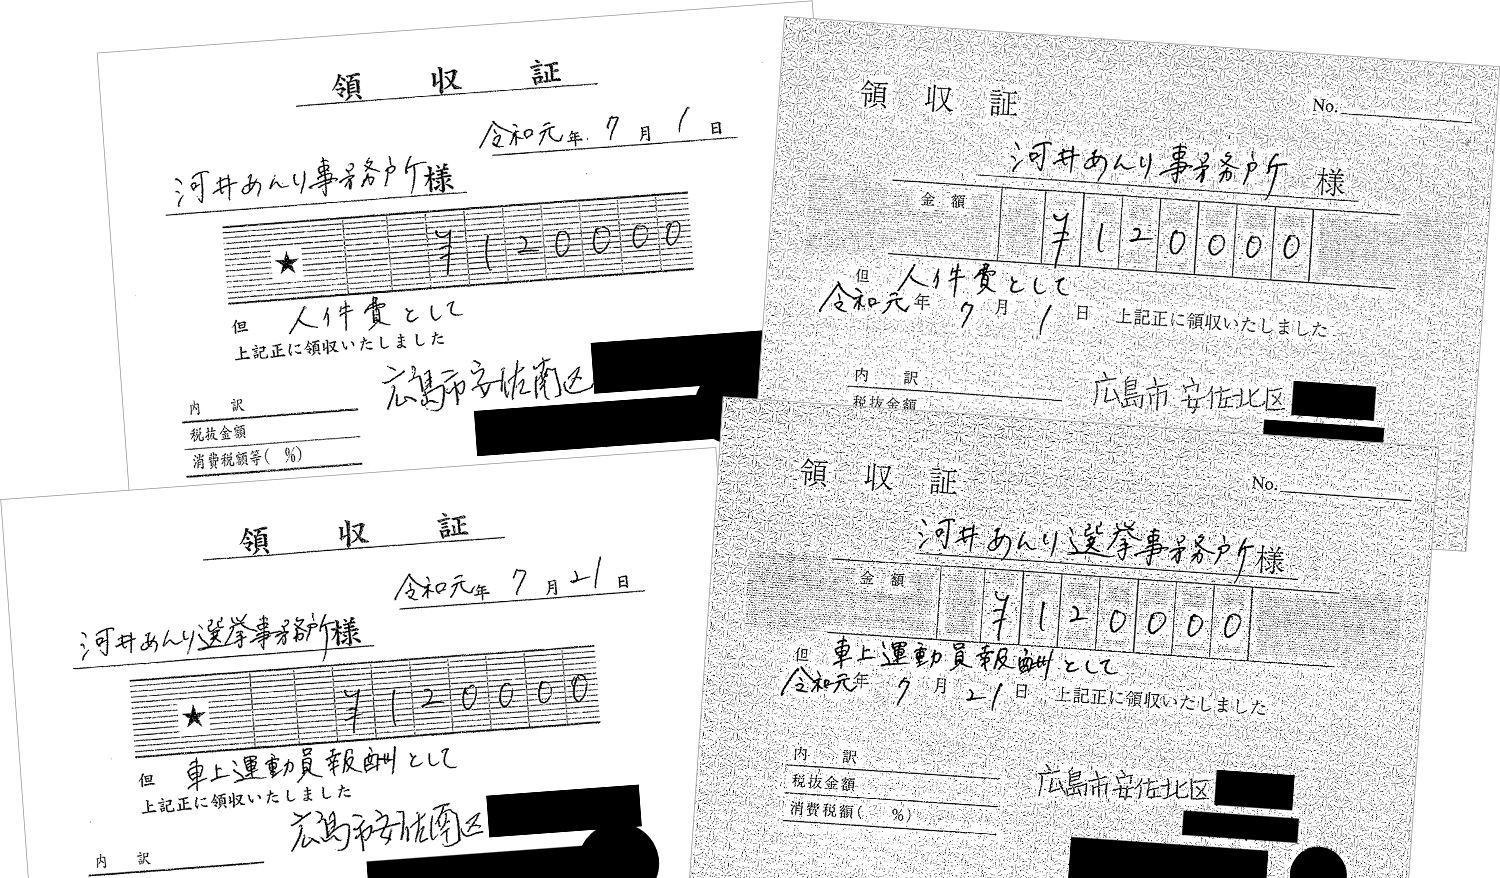 領収証
令和元年 7月1日
河井あんり事務所様
★ ¥120000
但 人件費として
上記正に領収いたしました
広島市安佐南区
内訳
税抜金額
消費税額等( %)
領収証
No.
河井あんり事務所 様
金額 ¥120000
但 人件費として
令和元年 7月1日 上記正に領収いたしました
内訳
広島市安佐北区
税抜金額
領収証
令和元年 7月21日
河井あんり選挙事務所様
★ ¥120000
但 車上運動員報酬として
上記正に領収いたしました
広島市安佐南区
内訳
領収証
No.
河井あんり選挙事務所様
金額 ¥120000
但 車上運動員報酬として
令和元年 7月21日 上記正に領収いたしました
内訳
広島市安佐北区
税抜金額
消費税額( %)